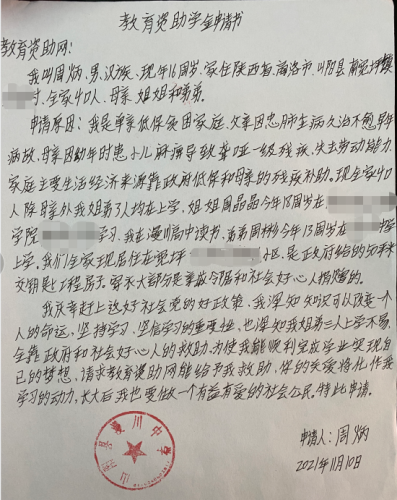 教育资助学金申请书
教育资助网:
我叫周炳、男、汉族、现年16周岁、家住陕西省商洛市山阳县
村、全家四口人、母亲、姐姐和弟弟。
申请原因:我是单亲低保贫困家庭、父亲因患肺部生病久治不愈早年
病故、母亲因幼年时患小儿麻痹导致聋哑一级残疾、失去劳动能力、
家庭主要生活经济来源靠政府低保和母亲的残疾补助。现全家四口
人除母亲外我姐弟3人均在上学、姐姐周晶晶今年18周岁在
学院 学习、我在漫川高中读书、弟弟周 今年13周岁在 中学
上学。我们全家现居住在 社区、是政府给的
交钥匙工程房子。家里大部分是亲戚邻居和社会好心人捐赠的。
我庆幸赶上这好社会党的好政策、我深知知识可以改变一个
人的命运、坚持学习、坚信学习的重要性、也深知我姐弟三人上学不易、
全靠政府和社会好心人的救助、为使我能顺利完成学业实现自
己的梦想、请求教育资助网能给予我救助、您的关爱将化作我
学习的动力、长大后我也要做一个有益有爱的社会公民。特此申请。
山阳县漫川中学
申请人:周炳
2021年11月10日